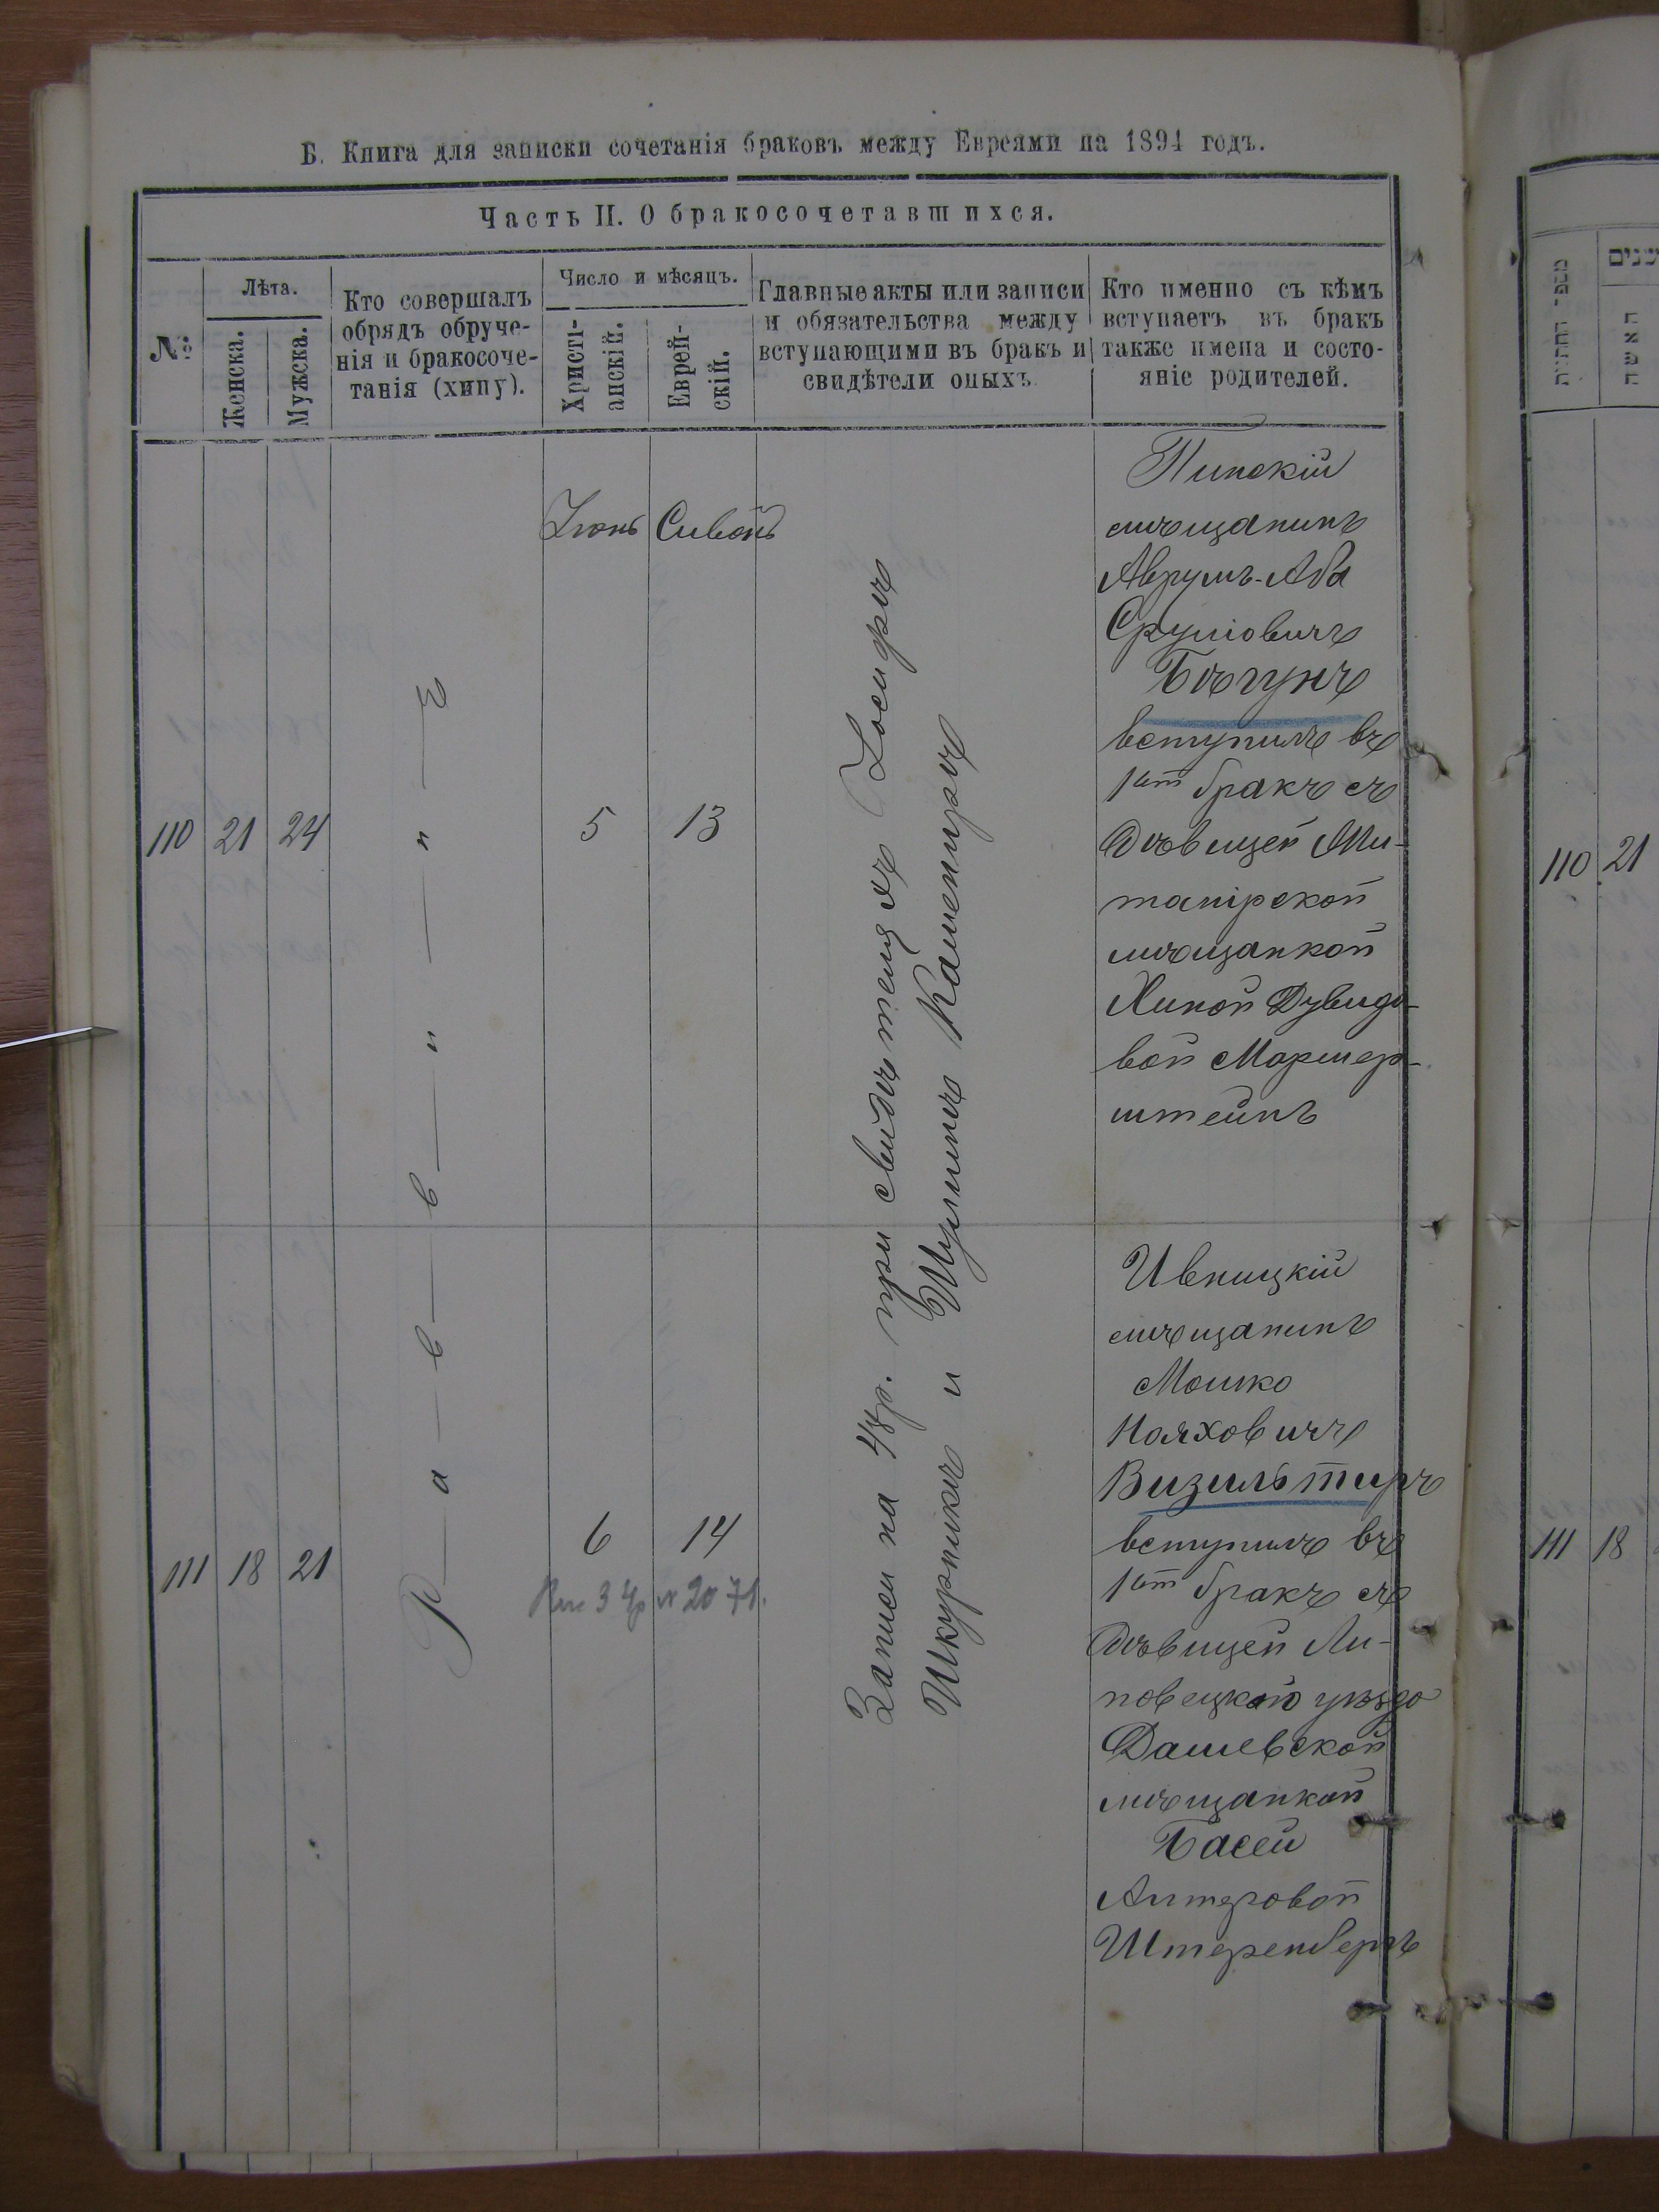 Б. Книга для записки сочетанія браковъ между Евреями на 1894 годъ.
Часть II. О бракосочетавшихся.
№
Лѣта.
Женска.
Мужска.
Кто совершалъ
обрядъ обруче-
нія и бракосоче-
танія (хипу).
Число и мѣсяцъ.
Христі-
анскій.
Еврей-
скій.
Главные акты или записи
и обязательства между
вступающими въ бракъ и
свидѣтели оныхъ
Кто именно съ кѣмъ
вступаетъ въ бракъ
также имена и состо-
яніе родителей.
Іюнь Сивонъ
110 21 24
Р — а — в — в — и — н — Э
5 13
Записи на 48р. при свидѣтеляхъ Іосифъ
Шкурникъ и Шулимъ Камениръ
Пинскій
мѣщанинъ
Аврумъ-Аба
Сруліовичъ
Бѣгунъ
вступилъ въ
1ый бракъ съ
дѣвицей Жи-
томірской
мѣщанкой
Хиной Дувидо-
вой Маршер-
штейнъ
111 18 21
6 14
Ивницкій
мѣщанинъ
Мошко
Нояховичъ
Визильтиръ
вступилъ въ
1ый бракъ съ
дѣвицей Ли-
повецкого уѣздо
Дашевской
мѣщанкой
Басей
Алтеровой
Штеренбергъ
110 21
111 18
האשה